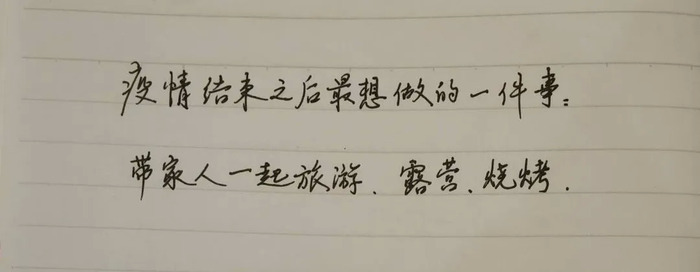 疫情结束之后最想做的一件事:
带家人一起旅游、露营、烧烤.